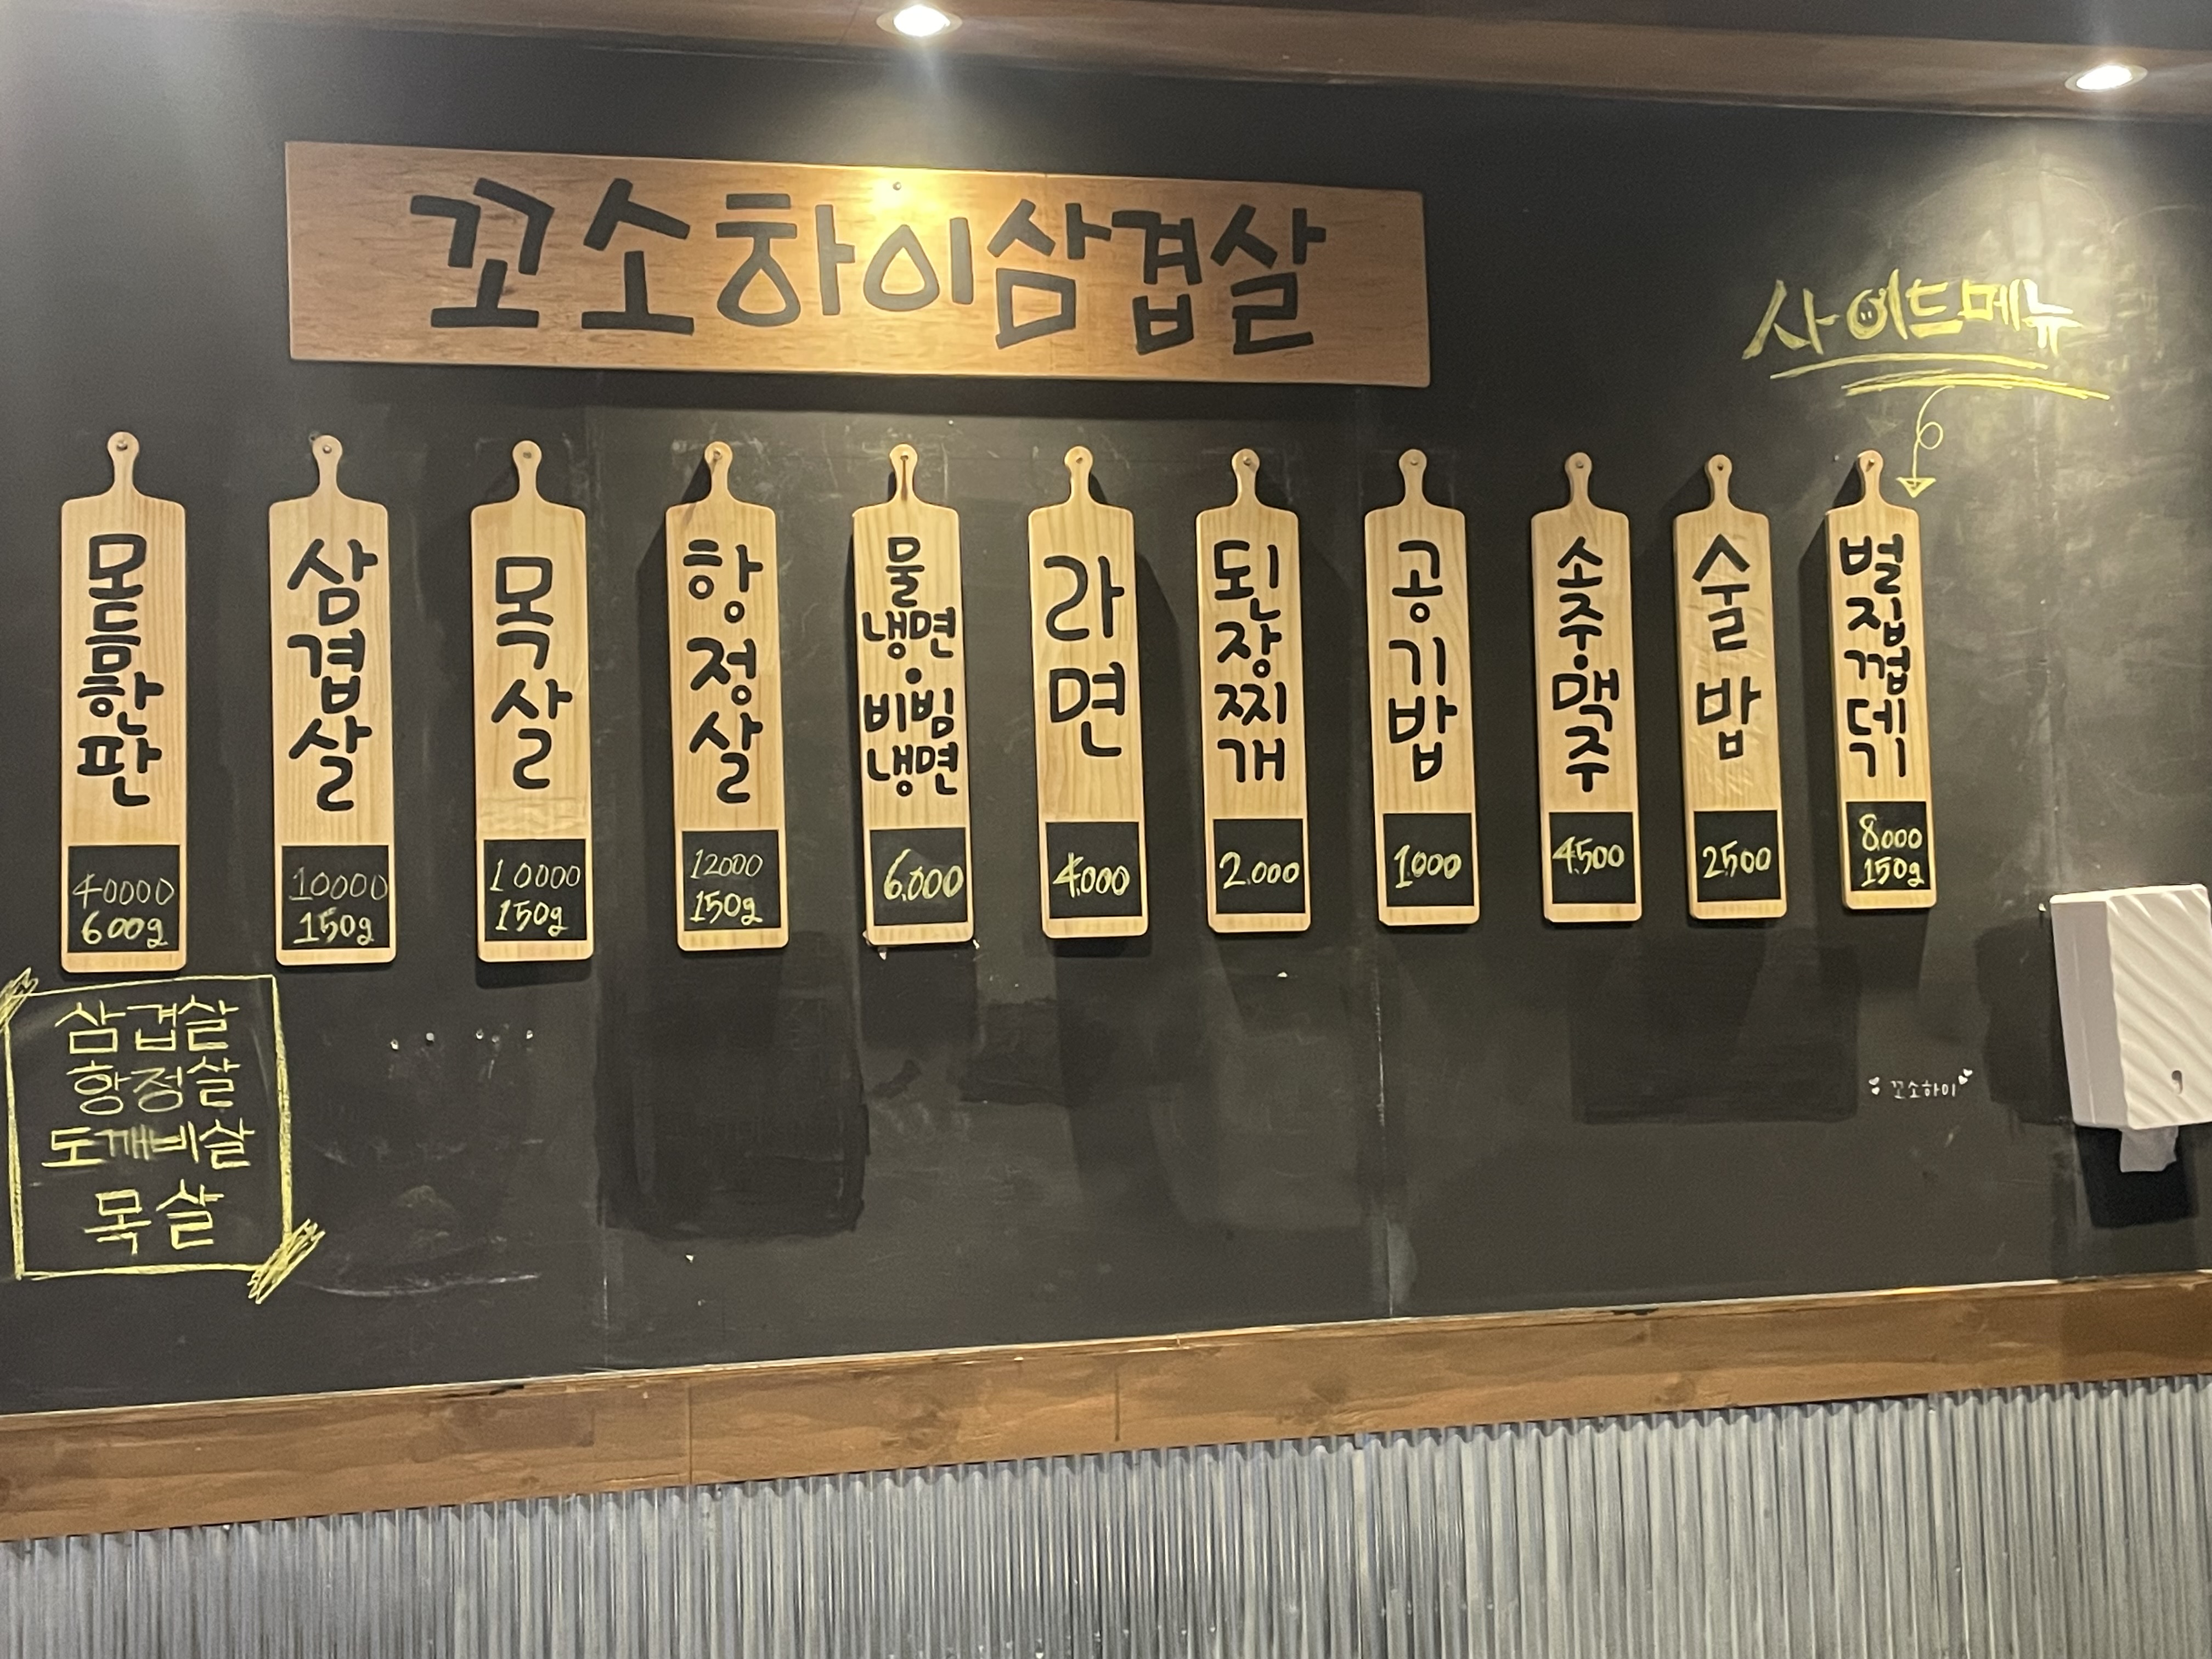 꼬소하이삼겹살
사이드메뉴
모듬한판
40000
600g
삼겹살
10000
150g
목살
10000
150g
항정살
12000
150g
물
냉면
·
비빔
냉면
6,000
라면
4,000
된장찌개
2,000
공기밥
1000
소주·맥주
4,500
술밥
2,500
벌집껍데기
8,000
150g
삼겹살
항정살
도깨비살
목살
꼬소하이